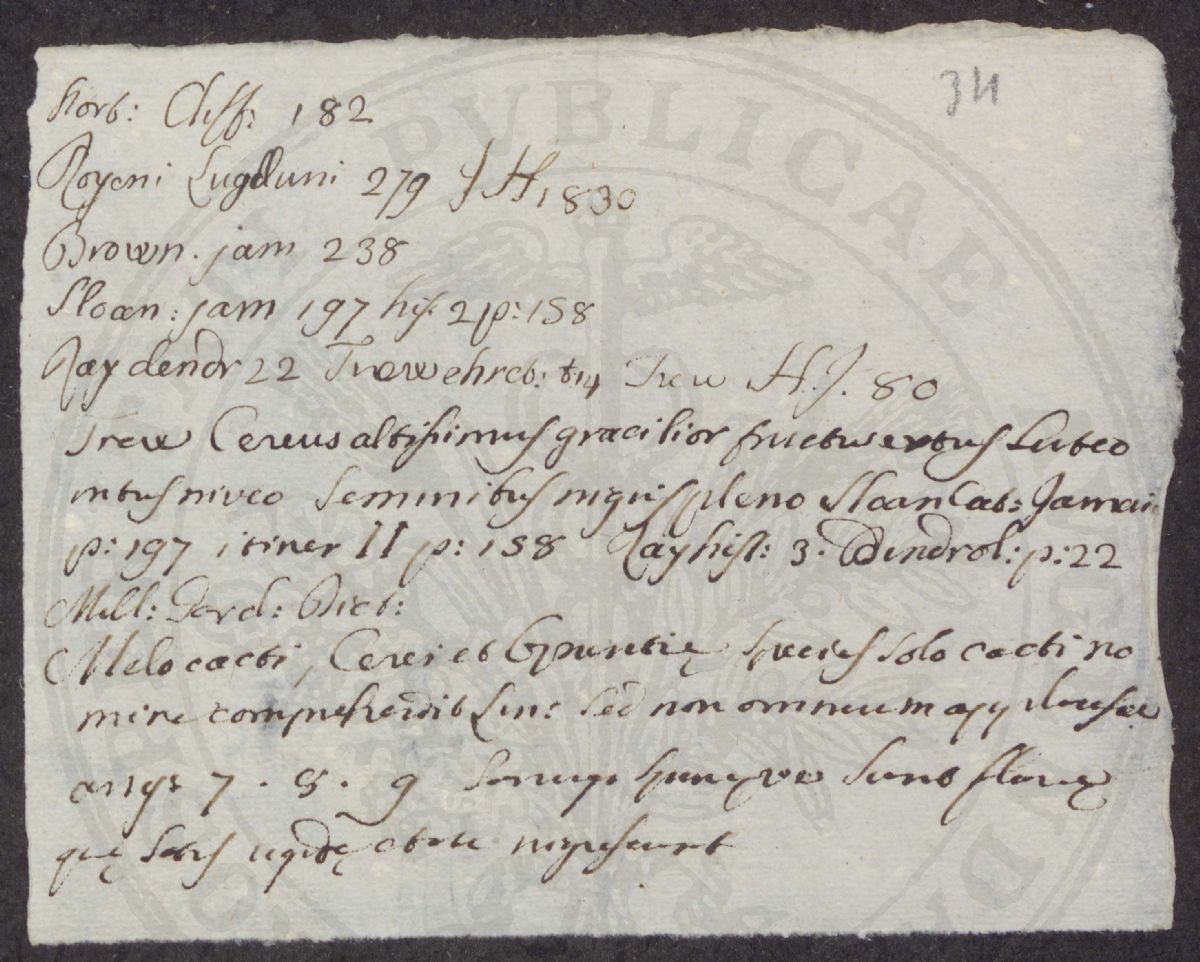 34
Hort: Cliff: 182
Royeni Lugduni 279 J H 1830
Brown. jam 238
Sloan: jam 197 his. 2 p: 158
Ray dendr 22 Trew ehret: t14 Trew H. J. 80
Trew Cereus altissimus gracilior fructu extus Luteo
intus niveo Seminibus nigris pleno Sloan Cat: Jamaic
p: 197 itiner II p: 158 Ray hist: 3. Dendrol: p: 22
Mill: Gard: Dict:
Melocacti, Cerei et Opuntię species solo cacti no
mine comprehendit Lin: Sed non omnium applausu
7 . 8 . 9 Sunt flavę
quę Satis rigidę nigrescunt